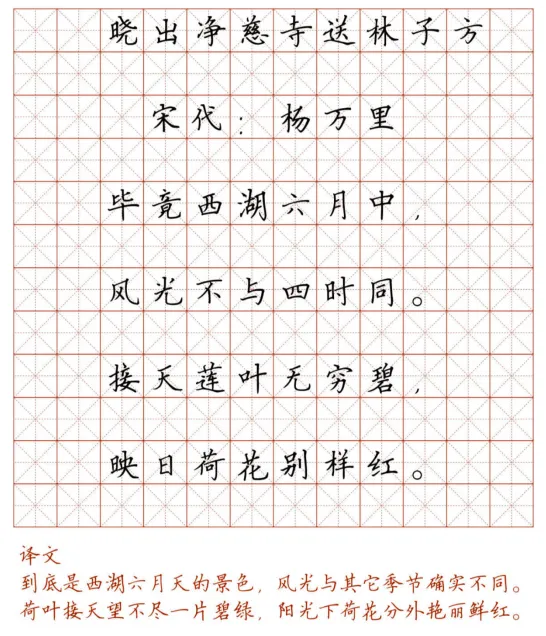 晓出净慈寺送林子方
宋代：杨万里
毕竟西湖六月中，
风光不与四时同。
接天莲叶无穷碧，
映日荷花别样红。
译文
到底是西湖六月天的景色，风光与其它季节确实不同。
荷叶接天望不尽一片碧绿，阳光下荷花分外艳丽鲜红。